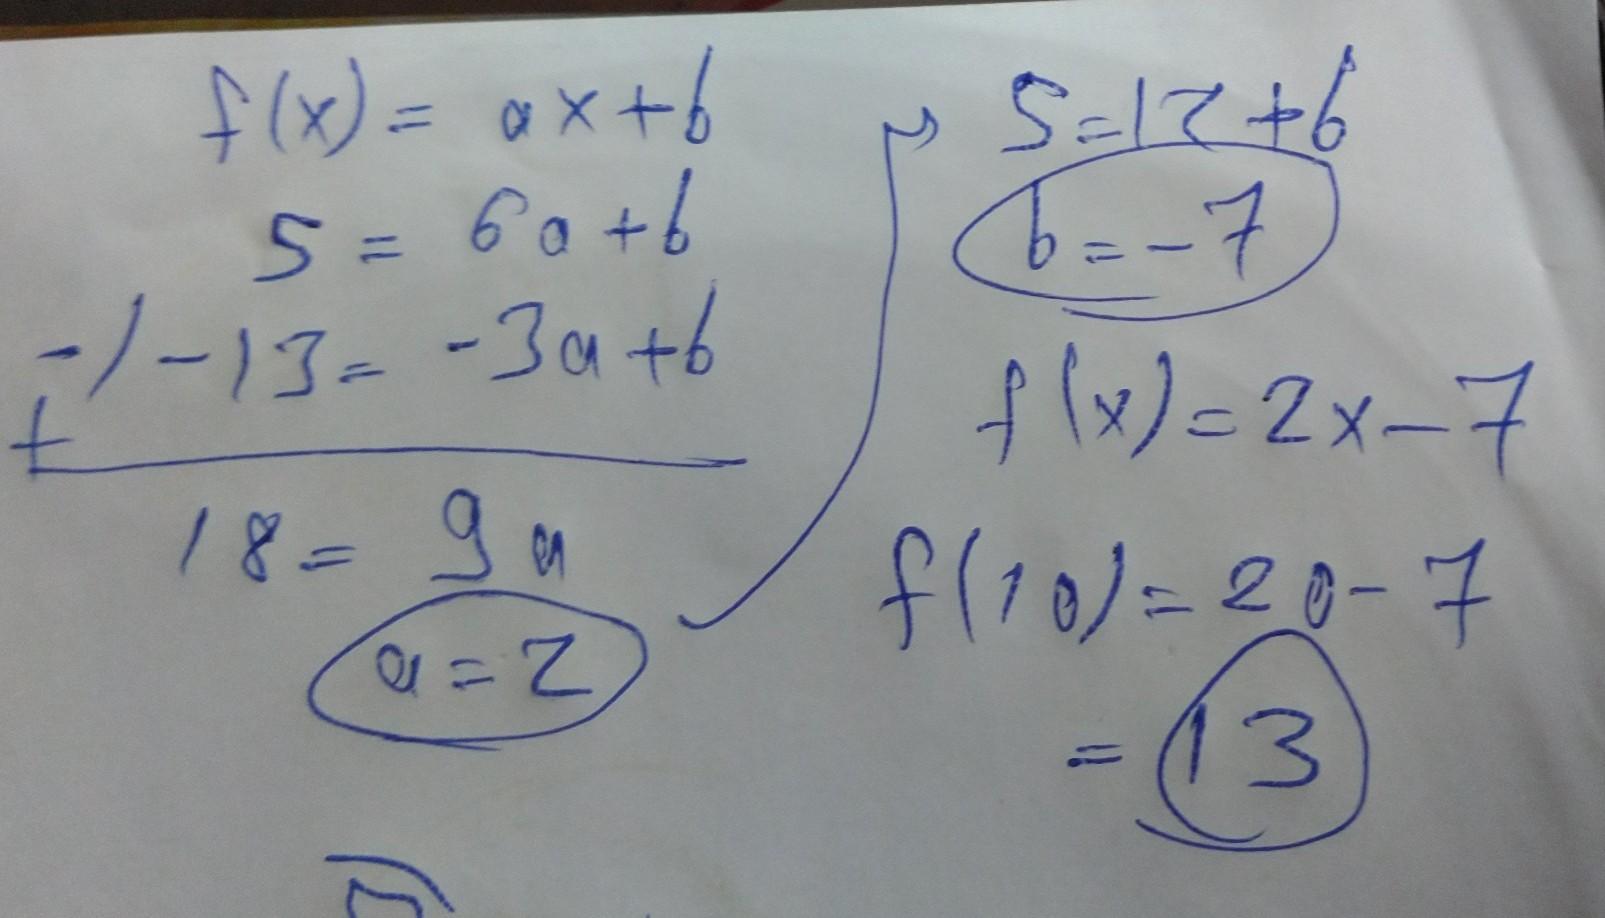 f(x) = ax+b
5 = 6a+b
-/ -13 = -3a+b
+
18 = 9a
a = 2
5 = 12+b
b = -7
f(x) = 2x-7
f(10) = 20-7
= 13